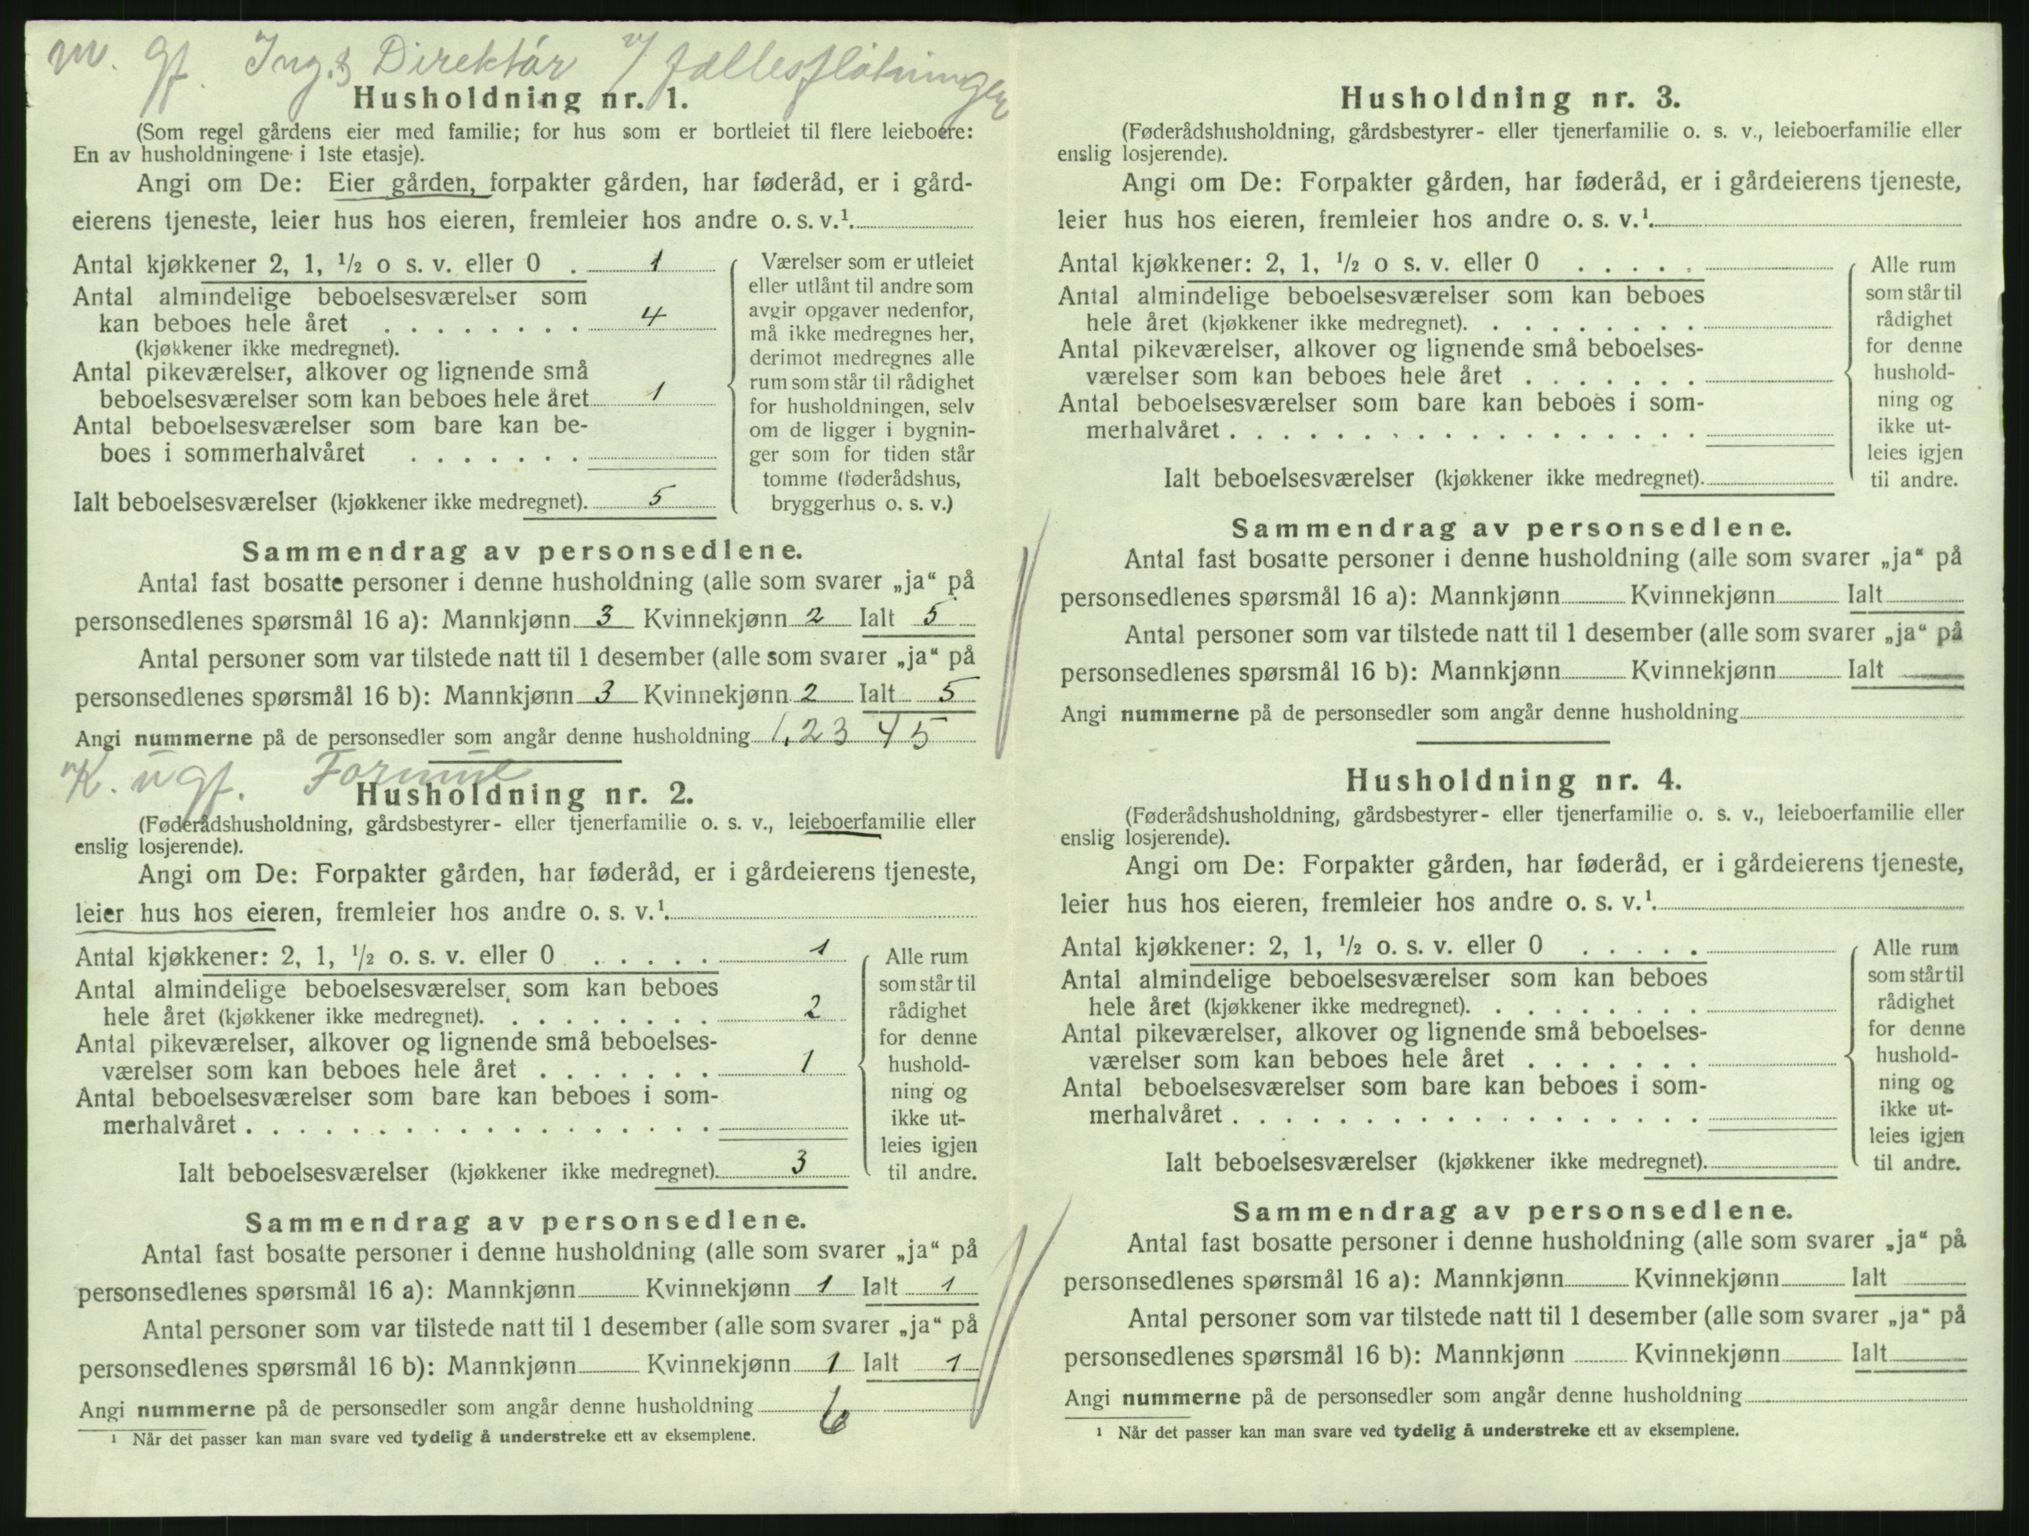 m. gf. Ing. & Direktör v/ fællesflötningen
Husholdning nr. 1.
(Som regel gårdens eier med familie; for hus som er bortleiet til flere leieboere:
En av husholdningene i 1ste etasje).
Angi om De: Eier gården, forpakter gården, har føderåd, er i gård-
eierens tjeneste, leier hus hos eieren, fremleier hos andre o. s. v.¹.
Antal kjøkkener 2, 1, ½ o s. v. eller 0 . 1
Antal almindelige beboelsesværelser som
kan beboes hele året . . . . . . . . 4
(kjøkkener ikke medregnet).
Antal pikeværelser, alkover og lignende små
beboelsesværelser som kan beboes hele året 1
Antal beboelsesværelser som bare kan be-
boes i sommerhalvåret . . . . . . .
Ialt beboelsesværelser (kjøkkener ikke medregnet). 5
Værelser som er utleiet
eller utlånt til andre som
avgir opgaver nedenfor,
må ikke medregnes her,
derimot medregnes alle
rum som står til rådighet
for husholdningen, selv
om de ligger i bygnin-
ger som for tiden står
tomme (føderådshus,
bryggerhus o. s. v.)
Sammendrag av personsedlene.
Antal fast bosatte personer i denne husholdning (alle som svarer „ja“ på
personsedlenes spørsmål 16 a): Mannkjønn 3 Kvinnekjønn 2 Ialt 5
Antal personer som var tilstede natt til 1 desember (alle som svarer „ja“ på
personsedlenes spørsmål 16 b): Mannkjønn 3 Kvinnekjønn 2 Ialt 5
Angi nummerne på de personsedler som angår denne husholdning 1, 2 3 4 5
K. ugf. Formue
Husholdning nr. 2.
(Føderådshusholdning, gårdsbestyrer- eller tjenerfamilie o. s. v., leieboerfamilie eller
enslig losjerende).
Angi om De: Forpakter gården, har føderåd, er i gårdeierens tjeneste,
leier hus hos eieren, fremleier hos andre o. s. v.¹.
Antal kjøkkener: 2, 1, ½ o. s. v. eller 0 . . . . . 1
Antal almindelige beboelsesværelser som kan beboes
hele året (kjøkkener ikke medregnet). . . . . . . . . 2
Antal pikeværelser, alkover og lignende små beboelses-
værelser som kan beboes hele året . . . . . . . 1
Antal beboelsesværelser som bare kan beboes i som-
merhalvåret . . . . . . . . . . . . . . . . . .
Ialt beboelsesværelser (kjøkkener ikke medregnet). 3
Alle rum
som står til
rådighet
for denne
hushold-
ning og
ikke ut-
leies igjen
til andre.
Sammendrag av personsedlene.
Antal fast bosatte personer i denne husholdning (alle som svarer „ja“ på
personsedlenes spørsmål 16 a): Mannkjønn Kvinnekjønn 1 Ialt 1
Antal personer som var tilstede natt til 1 desember (alle som svarer „ja“ på
personsedlenes spørsmål 16 b): Mannkjønn Kvinnekjønn 1 Ialt 1
Angi nummerne på de personsedler som angår denne husholdning 6
¹ Når det passer kan man svare ved tydelig å understreke ett av eksemplene.
Husholdning nr. 3.
(Føderådshusholdning, gårdsbestyrer- eller tjenerfamilie o. s. v., leieboerfamilie eller
enslig losjerende).
Angi om De: Forpakter gården, har føderåd, er i gårdeierens tjeneste,
leier hus hos eieren, fremleier hos andre o. s. v.¹.
Antal kjøkkener: 2, 1, ½ o s. v. eller 0 . . . . .
Antal almindelige beboelsesværelser som kan beboes
hele året (kjøkkener ikke medregnet). . . . . . . . .
Antal pikeværelser, alkover og lignende små beboelses-
værelser som kan beboes hele året . . . . . . .
Antal beboelsesværelser som bare kan beboes i som-
merhalvåret . . . . . . . . . . . . . . . . . .
Ialt beboelsesværelser (kjøkkener ikke medregnet).
Alle rum
som står til
rådighet
for denne
hushold-
ning og
ikke ut-
leies igjen
til andre.
Sammendrag av personsedlene.
Antal fast bosatte personer i denne husholdning (alle som svarer „ja“ på
personsedlenes spørsmål 16 a): Mannkjønn Kvinnekjønn Ialt
Antal personer som var tilstede natt til 1 desember (alle som svarer „ja“ på
personsedlenes spørsmål 16 b): Mannkjønn Kvinnekjønn Ialt
Angi nummerne på de personsedler som angår denne husholdning
Husholdning nr. 4.
(Føderådshusholdning, gårdsbestyrer- eller tjenerfamilie o. s. v., leieboerfamilie eller
enslig losjerende).
Angi om De: Forpakter gården, har føderåd, er i gårdeierens tjeneste,
leier hus hos eieren, fremleier hos andre o. s. v.¹.
Antal kjøkkener: 2, 1, ½ o. s. v. eller 0 . . . . .
Antal almindelige beboelsesværelser som kan beboes
hele året (kjøkkener ikke medregnet). . . . . . . . .
Antal pikeværelser, alkover og lignende små beboelses-
værelser som kan beboes hele året . . . . . . .
Antal beboelsesværelser som bare kan beboes i som-
merhalvåret . . . . . . . . . . . . . . . . . .
Ialt beboelsesværelser (kjøkkener ikke medregnet).
Alle rum
som står til
rådighet
for denne
hushold-
ning og
ikke ut-
leies igjen
til andre.
Sammendrag av personsedlene.
Antal fast bosatte personer i denne husholdning (alle som svarer „ja“ på
personsedlenes spørsmål 16 a): Mannkjønn Kvinnekjønn Ialt
Antal personer som var tilstede natt til 1 desember (alle som svarer „ja“ på
personsedlenes spørsmål 16 b): Mannkjønn Kvinnekjønn Ialt
Angi nummerne på de personsedler som angår denne husholdning
¹ Når det passer kan man svare ved tydelig å understreke ett av eksemplene.